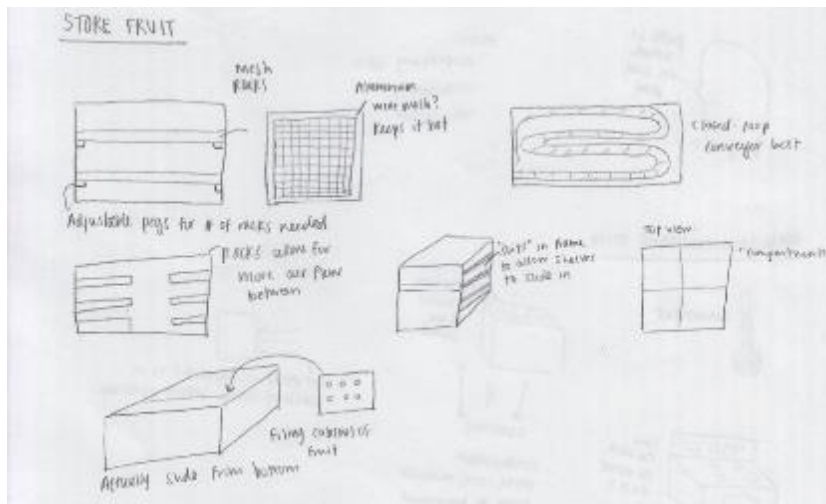 STORE FRUIT
mesh
racks
Aluminum
wire mesh?
Keeps it hot
closed-loop
conveyor belt
Adjustable pegs for # of racks needed
racks allow for
more air flow
between
"slits" in frame
to allow shelves
to slide in
Top view
compartments
Filing cabinet of
fruit
Actually slide from bottom